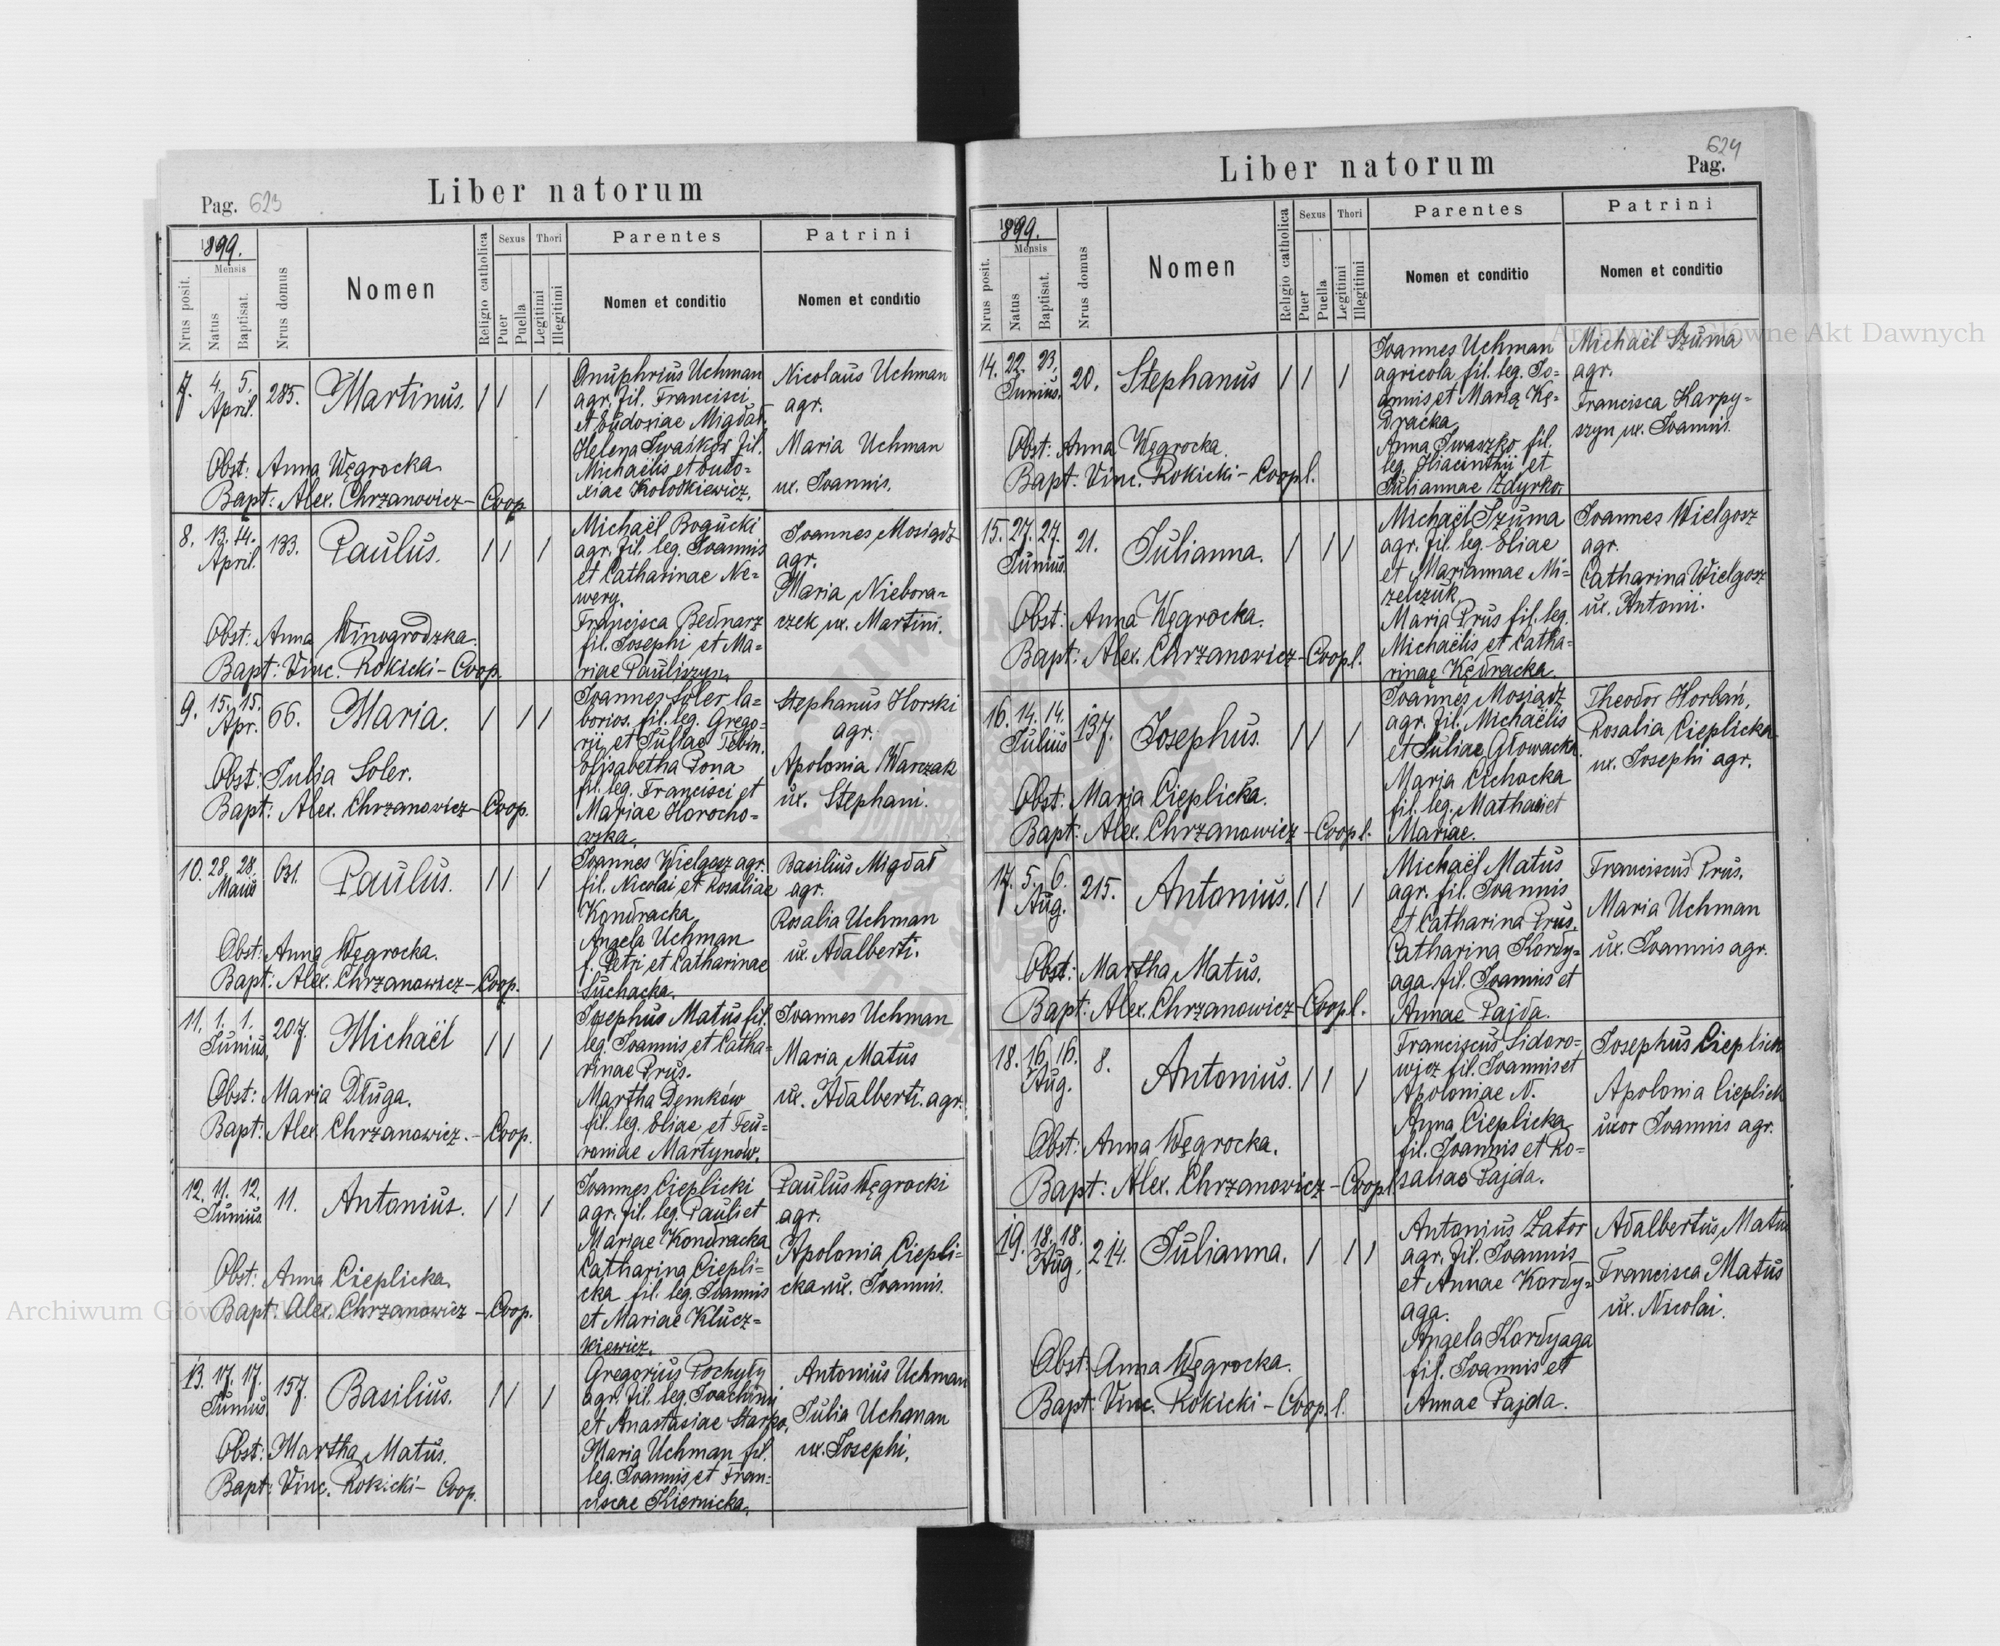 Pag. 623
Liber natorum
1899.
Mensis
Nrus posit.
Natus
Baptisat.
Nrus domus
Nomen
Religio catholica
Sexus
Puer
Puella
Thori
Legitimi
Illegitimi
Parentes
Nomen et conditio
Patrini
Nomen et conditio
7. 4. 5. April. 285. Martinus.
Obst: Anna Węgrocka.
Bapt: Alex. Chrzanowicz – Coop.
Onuphrius Uchman
agr. fil. Francisci
et Eudoxiae Migdał.
Helena Iwaśków fil.
Michaëlis et Eudo-
xiae Kołodkiewicz.
Nicolaus Uchman
agr.
Maria Uchman
ux. Joannis.
8. 13. 14. April. 133. Paulus.
Obst: Anna Winogrodzka.
Bapt: Vinc. Rokicki – Coop.
Michaël Bogucki
agr. fil. leg. Joannis
et Catharinae Ne-
wery.
Francisca Bednarz
fil. Josephi et Ma-
riae Pauliszyn.
Joannes Mosiądz
agr.
Maria Niebora-
czek ux. Martini.
9. 15. 15. Apr. 66. Maria.
Obst: Julia Soler.
Bapt: Alex. Chrzanowicz – Coop.
Joannes Soler la-
borios. fil. leg. Grego-
rii et Juliae Tebin.
Elisabetha Pona
fil. leg. Francisci et
Mariae Horocho-
wska.
Stephanus Horski
agr.
Apolonia Warczak
ux. Stephani.
10. 28. 28. Maius 631. Paulus.
Obst: Anna Węgrocka.
Bapt: Alex. Chrzanowicz – Coop.
Joannes Wielgosz agr.
fil. Nicolai et Rosaliae
Kondracka
Angela Uchman
f. Petri et Catharinae
Suchacka.
Basilius Migdał
agr.
Rosalia Uchman
ux. Adalberti.
11. 1. 1. Junius. 207. Michaël
Obst: Maria Długa.
Bapt: Alex. Chrzanowicz. – Coop.
Josephus Matus fil.
leg. Joannis et Catha-
rinae Prus.
Martha Demków
fil. leg. Eliae et Feu-
roniae Martynów.
Joannes Uchman
Maria Matus
ux. Adalberti. agr.
12. 11. 12. Junius 11. Antonius.
Obst: Anna Cieplicka.
Bapt: Alex. Chrzanowicz – Coop.
Joannes Cieplicki
agr. fil. leg. Pauli et
Mariae Kondracka
Catharina Ciepli-
cka fil. leg. Joannis
et Mariae Klucz-
kiewicz.
Paulus Węgrocki
agr.
Apolonia Ciepli-
cka ux. Joannis.
13. 17. 17. Junius 157. Basilius.
Obst: Martha Matus.
Bapt: Vinc. Rokicki – Coop.
Gregorius Pochyły
agr. fil. leg. Joachimi
et Anastasiae Starko.
Maria Uchman fil.
leg. Joannis et Fran-
ciscae Kiernicka.
Antonius Uchman
Julia Uchman
ux. Josephi.
Liber natorum
624
Pag.
1899.
Mensis
Nrus posit.
Natus
Baptisat.
Nrus domus
Nomen
Religio catholica
Sexus
Puer
Puella
Thori
Legitimi
Illegitimi
Parentes
Nomen et conditio
Patrini
Nomen et conditio
14. 22. 23. Junius. 20. Stephanus
Obst: Anna Węgrocka.
Bapt: Vinc. Rokicki – Coopl.
Joannes Uchman
agricola fil. leg. Jo-
annis et Marią Kę-
dracka
Anna Iwaszko fil.
leg. Hiacinthii et
Juliannae Zdyrko.
Michaël Szuma
agr.
Francisca Karpy-
szyn ux. Joannis.
15. 27. 27. Junius 21. Julianna.
Obst: Anna Węgrocka.
Bapt: Alex. Chrzanowicz – Coopl.
Michaël Szuma
agr. fil. leg. Eliae
et Mariannae Mi-
zelczuk
Maria Prus fil. leg.
Michaëlis et Catha-
rinae Kędracka.
Joannes Wielgosz
agr.
Catharina Wielgosz
ux. Antonii.
16. 14. 14. Julius 137. Josephus.
Obst: Maria Cieplicka.
Bapt: Alex. Chrzanowicz – Coopl.
Joannes Mosiądz
agr. fil. Michaëlis
et Juliae Głowacka.
Maria Cichocka
fil. leg. Mathaei et
Mariae.
Theodor Horbań,
Rosalia Cieplicka
ux. Josephi agr.
17. 5. 6. Aug. 215. Antonius.
Obst: Martha Matus.
Bapt: Alex. Chrzanowicz – Coopl.
Michaël Matus
agr. fil. Joannis
et Catharina Prus.
Catharina Kordy-
aga fil. Joannis et
Annae Pajda.
Franciscus Prus.
Maria Uchman
ux. Joannis agr.
18. 16. 16. Aug. 8. Antonius.
Obst: Anna Węgrocka.
Bapt: Alex. Chrzanowicz – Coopl.
Franciscus Sidoro-
wicz fil. Joannis et
Apoloniae N.
Anna Cieplicka
fil. Joannis et Ro-
saliae Pajda.
Josephus Cieplick
Apolonia Cieplick
uxor Joannis agr.
19. 18. 18. Aug. 214. Julianna.
Obst: Anna Węgrocka.
Bapt: Vinc. Rokicki – Coopl.
Antonius Zator
agr. fil. Joannis
et Annae Kordy-
aga.
Angela Kordyaga
fil. Joannis et
Annae Pajda.
Adalbertus Matus
Francisca Matus
ux. Nicolai.
Archiwum Główne Akt Dawnych